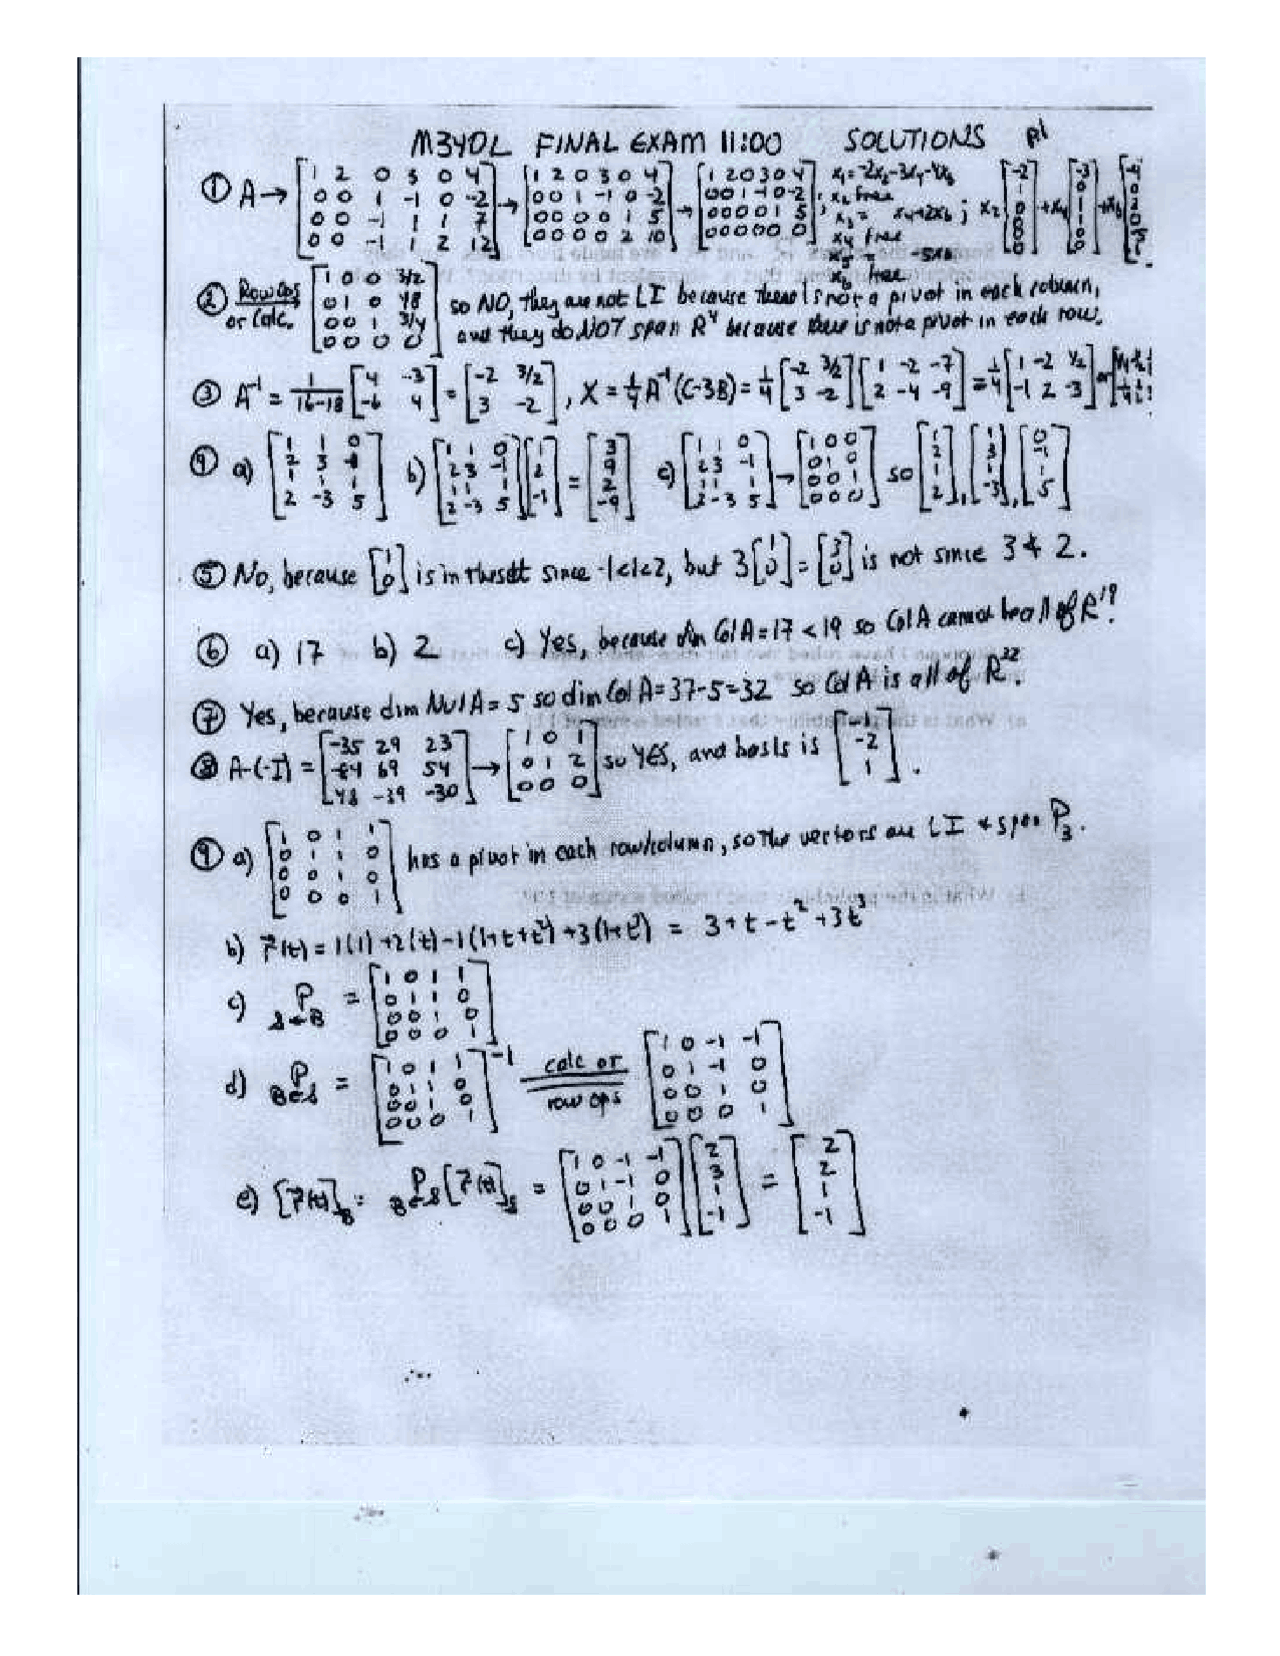 M340L FINAL EXAM 11:00 SOLUTIONS P1
① A → [1 2 0 3 0 4; 0 0 1 -1 0 -2; 0 0 -1 1 1 7; 0 0 -1 1 2 12] → [1 2 0 3 0 4; 0 0 1 -1 0 -2; 0 0 0 0 1 5; 0 0 0 0 2 10] → [1 2 0 3 0 4; 0 0 1 -1 0 -2; 0 0 0 0 1 5; 0 0 0 0 0 0];
x₁ = -2x₂-3x₄-4x₆
x₂ free
x₃ = x₄+2x₆
x₄ free
x₅ = -5x₆
x₆ free
; x₂[-2; 1; 0; 0; 0; 0] + x₄[-3; 0; 1; 1; 0; 0] + x₆[-4; 0; 2; 0; -5; 1]
② Row ops or Calc. [1 0 0 3/2; 0 1 0 4/8; 0 0 1 3/4; 0 0 0 0] so NO, they are not LI because there is not a pivot in each column,
and they do NOT span R⁴ because there is not a pivot in each row.
③ A⁻¹ = 1/(16-18) [4 -3; -6 4] = [-2 3/2; 3 -2], X = 1/4 A⁻¹(C-3B) = 1/4 [-2 3/2; 3 -2][1 -2 -7; 2 -4 -9] = 1/4 [1 -2 1/2; -1 2 -3] or
④ a) [1 1 0; 2 3 -1; 1 1 1; 2 -3 5] b) [1 1 0; 2 3 -1; 1 1 1; 2 -3 5][1; 2; -1] = [3; 9; 2; -9] c) [1 1 0; 2 3 -1; 1 1 1; 2 -3 5] → [1 0 0; 0 1 0; 0 0 1; 0 0 0] so [1; 2; 1; 2], [1; 3; 1; -3], [0; -1; 1; 5]
⑤ No, because [1; 0] is in the set since -1<1<2, but 3[1; 0] = [3; 0] is not since 3 ≮ 2.
⑥ a) 17 b) 2 c) Yes, because dim Col A = 17 < 19 so Col A cannot be all of R¹⁹.
⑦ Yes, because dim Nul A = 5 so dim Col A = 37-5 = 32 so Col A is all of R³².
⑧ A-(-I) = [-35 29 23; -84 69 54; 48 -39 -30] → [1 0 1; 0 1 2; 0 0 0] so YES, and basis is [-1; -2; 1].
⑨ a) [1 0 1 1; 0 1 1 0; 0 0 1 0; 0 0 0 1] has a pivot in each row/column, so the vectors are LI + span P₃.
b) p(t) = 1(1)+2(t)-1(1+t+t²)+3(1+t³) = 3+t-t²+3t³
c) P S←B = [1 0 1 1; 0 1 1 0; 0 0 1 0; 0 0 0 1]
d) P B←S = [1 0 1 1; 0 1 1 0; 0 0 1 0; 0 0 0 1]⁻¹ calc or row ops [1 0 -1 -1; 0 1 -1 0; 0 0 1 0; 0 0 0 1]
e) [p(t)]B = P B←S [p(t)]S = [1 0 -1 -1; 0 1 -1 0; 0 0 1 0; 0 0 0 1][2; 3; 1; -1] = [2; 2; 1; -1]